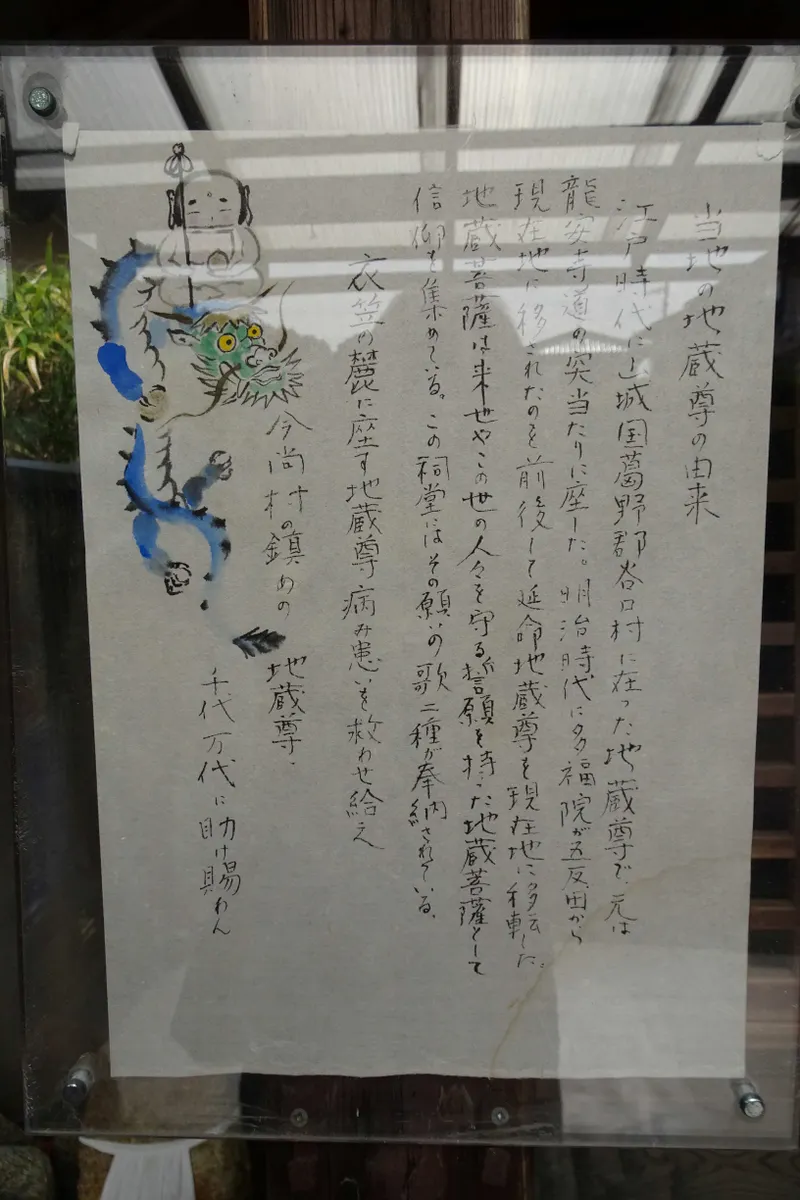 当地の地蔵尊の由来
江戸時代に山城国葛野郡谷口村に在った地蔵尊で、元は
龍安寺道の突当たりに座した。明治時代に多福院が五反田から
現在地に移されたのを前後して延命地蔵尊を現在地に移転した。
地蔵菩薩は来世やこの世の人々を守る誓願を持った地蔵菩薩として
信仰を集めている。この祠堂にはその願いの歌二種が奉納されている。
衣笠の麓に座す地蔵尊 病み患いを救わせ給え
今尚村の鎮めの 地蔵尊、
千代万代に助け賜わん